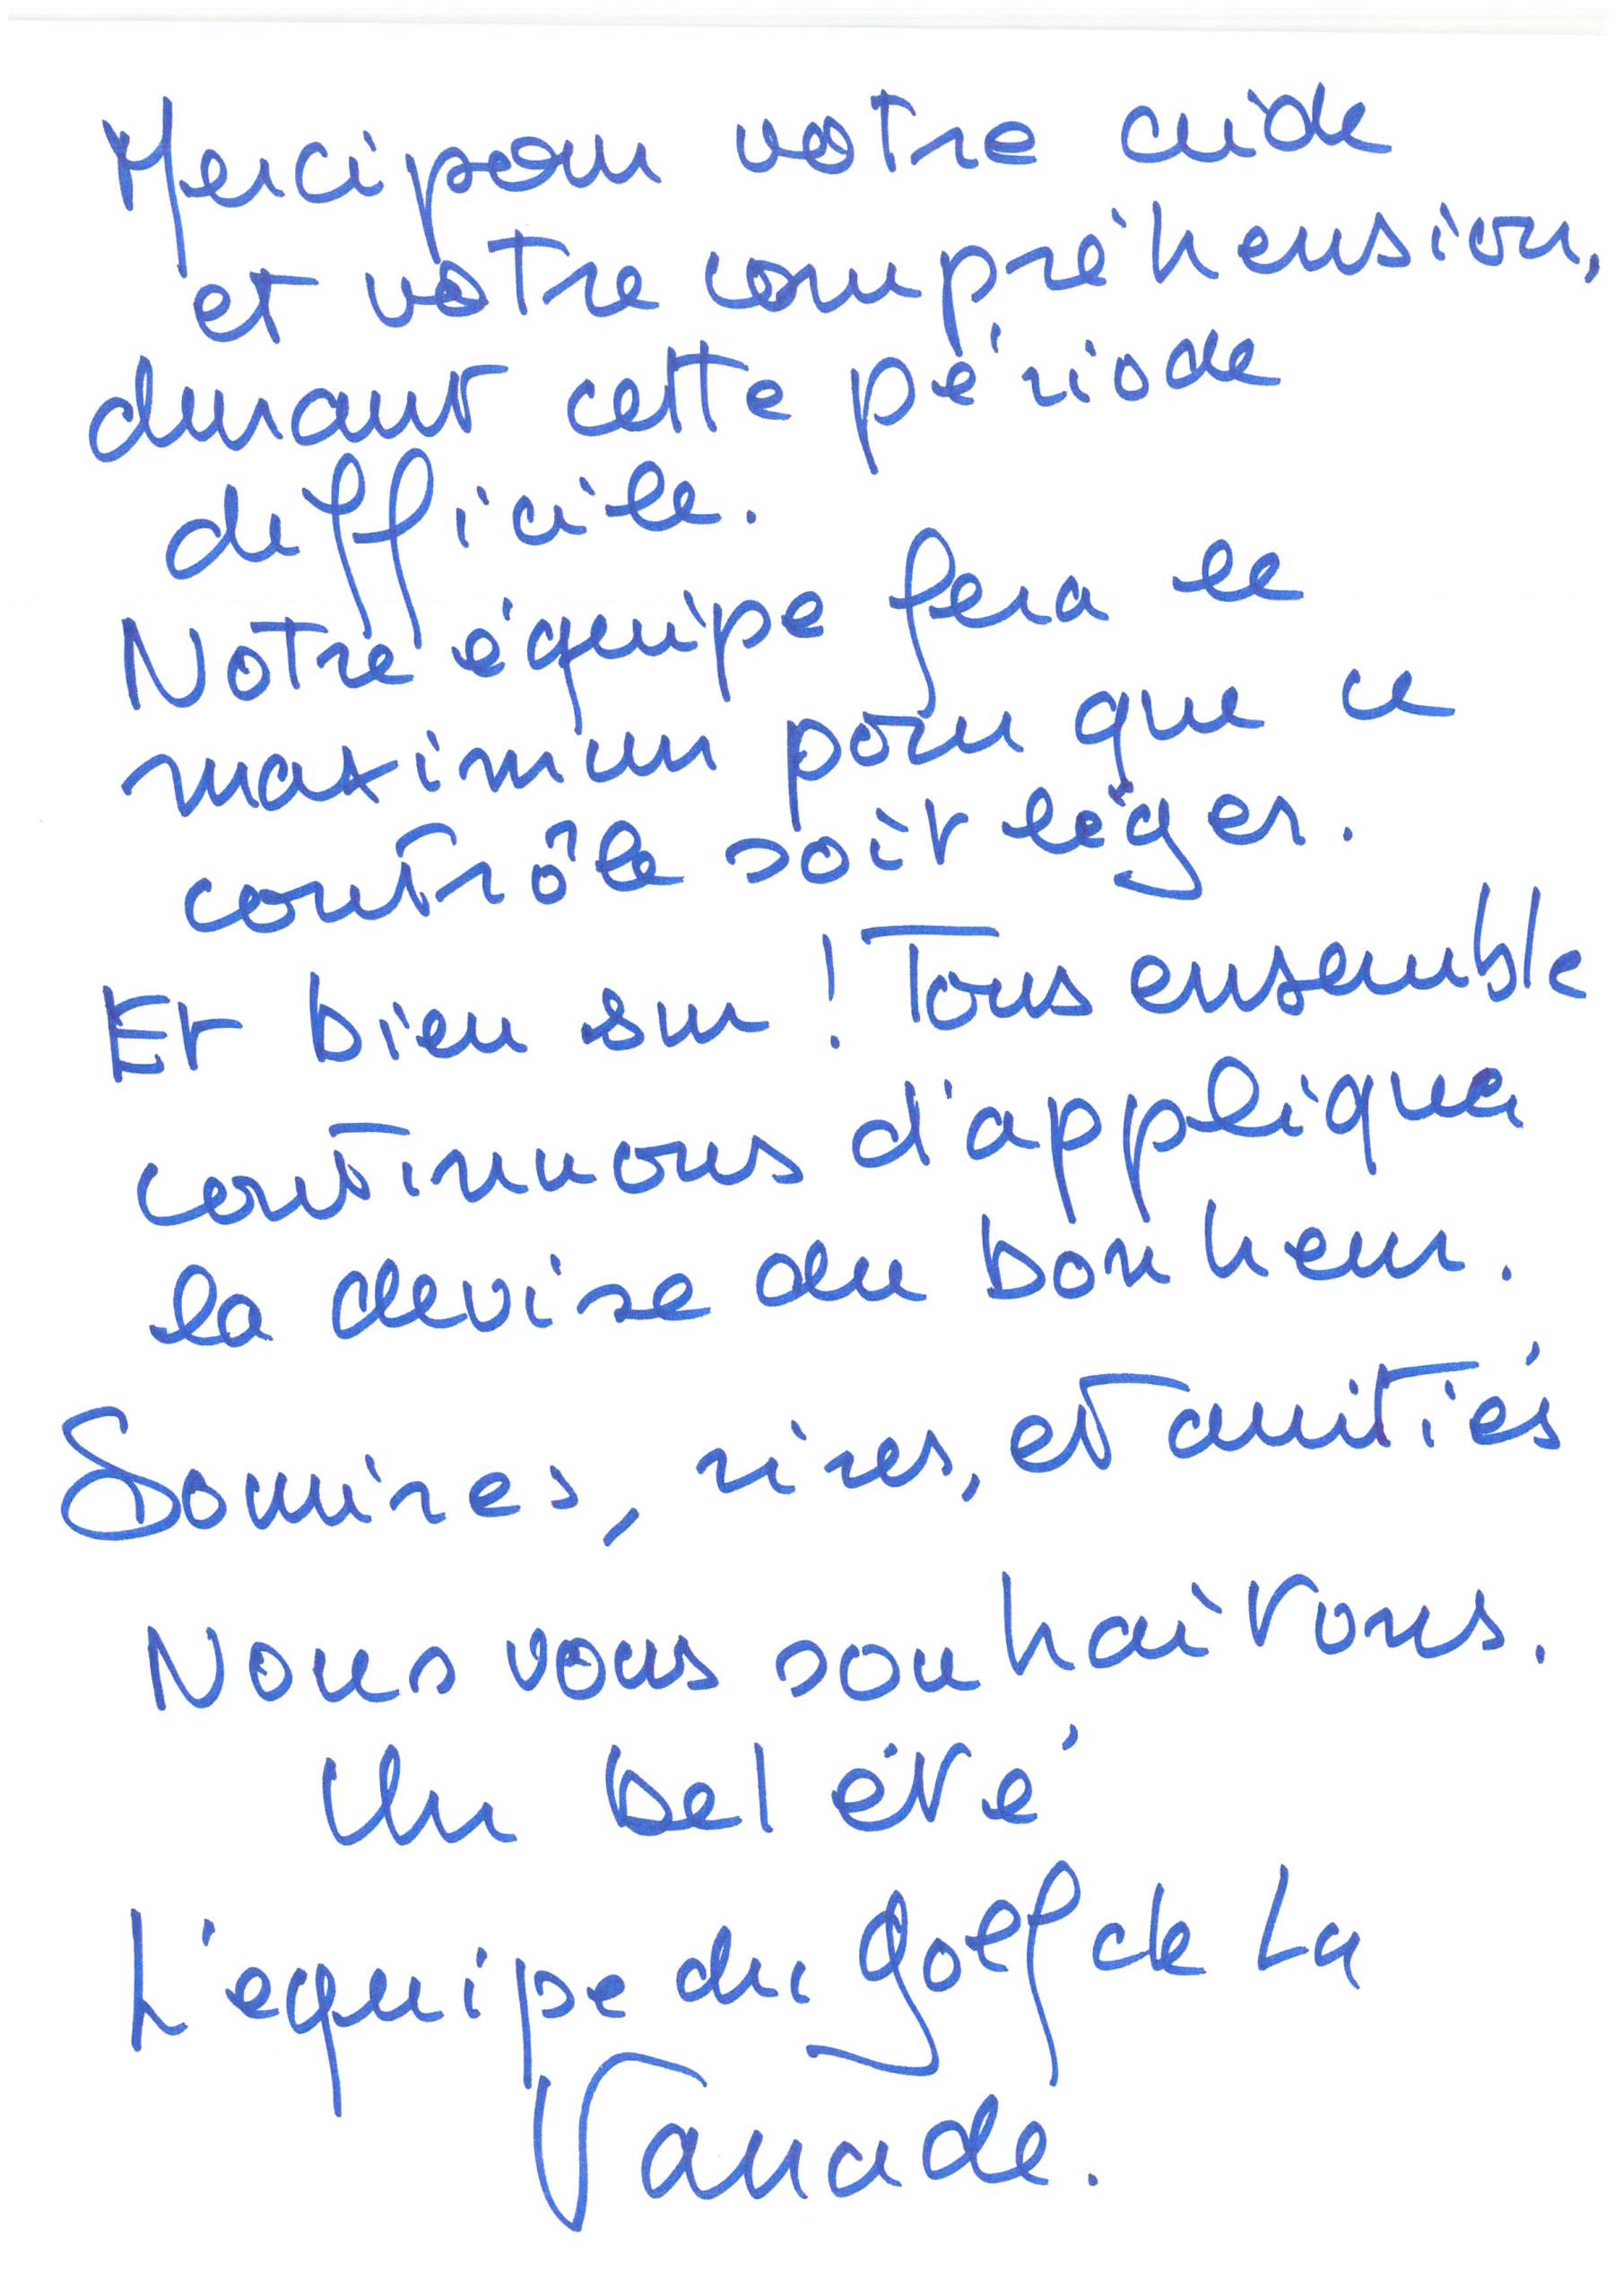 Merci pour votre aide
et votre compréhension,
durant cette période
difficile.
Notre équipe fera le
maximum pour que ce
contrôle soit léger.
Et bien sur ! Tous ensemble
continuons d'appliquer
la devise du bonheur.
Sourires, rires, et amitiés
Nous vous souhaitons.
Un bel été
L'équipe du Golf de La
Vanade.